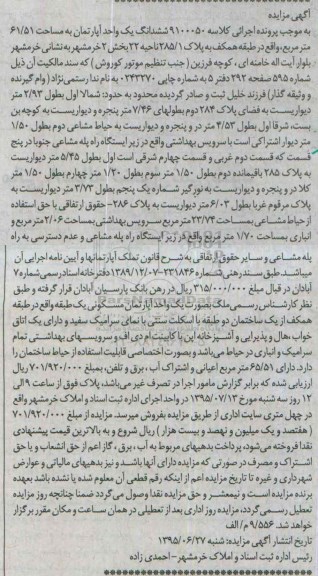 آگهی مزایده
به موجب پرونده اجرائی کلاسه ۹۱۰۰۰۵۰ ششدانگ یک واحد آپارتمان به مساحت ۶۱/۵۱
متر مربع، واقع در طبقه همکف به پلاک ۲۸۵/۱ ناحیه ۲۲ بخش ۲ خرمشهر به نشانی خرمشهر
بلوار آیت اله خامنه ای، کوچه فرزین (جنب تنظیم موتور کوروش) که سند مالکیت آن ذیل
شماره ۵۹۵ صفحه ۲۹۲ دفتر ۵ به شماره چاپی ۲۴۲۲۷۰ به نام ندا رستمی نژاد (وام گیرنده
و وثیقه گذار) فرزند خلیل ثبت و صادر گردیده محدود به حدود: شمالا اول بطول ۲/۹۳ متر
دیواریست به فضای پلاک ۲۸۴ دوم بطولهای ۷/۴۶ متر پنجره و دیواریست به کوچه بن
بست، شرقا اول بطول ۴/۵۳ متر در و پنجره و دیواریست به حیاط مشاعی دوم بطول ۱/۵۰
متر دیوار اشتراکی است با سرویس بهداشتی واقع در زیر ایستگاه راه پله مشاعی جنوبا در پنج
قسمت که قسمت دوم غربی و قسمت چهارم شرقی است اول بطول ۵/۴۵ متر دیواریست
به پلاک ۲۸۵ باقیمانده دوم بطول ۱/۵۰ متر سوم بطول ۱/۲۰ متر چهارم بطول ۱/۵۰ متر
کلا در و پنجره و دیواریست به نورگیر شماره یک پنجم بطول ۳/۷۳ متر دیواریست به
پلاک مرقوم غربا بطول ۶/۰۳ متر دیواریست به پلاک ۲۸۶- حقوق ارتفاقی با حق استفاده
از حیاط مشاعی بمساحت ۲۳/۷۴ متر مربع سرویس بهداشتی بمساحت ۲/۰۶ متر مربع و
انباری بمساحت ۱/۷۰ متر مربع واقع در زیر ایستگاه راه پله مشاعی و عدم دسترسی به راه
پله مشاعی و سایر حقوق ارتفاقی به شرح قانون تملک آپارتمانها و آیین نامه اجرایی آن
میباشد. طبق سند رهنی شماره ۲۳۱۸۴۶-۱۳۸۹/۱۲/۰۷ دفترخانه اسناد رسمی شماره ۷
آبادان در قبال مبلغ ۳۱۵/۰۰۰/۰۰۰ ریال در رهن بانک پارسیان آبادان قرار گرفته و طبق
نظر کارشناس رسمی ملک بصورت یک واحد آپارتمان مسکونی یک طبقه واقع در طبقه
همکف از یک ساختمان دو طبقه با اسکلت سنتی با نمای سرامیک سفید و دارای یک اتاق
خواب، هال و پذیرایی و آشپزخانه اپن با کابینت ام دی اف و سرویسهای بهداشتی تمام
سرامیک و انباری در حیاط می باشد و بصورت اختصاصی قابلیت استفاده از حیاط ساختمان را
دارد. دارای ۶۵/۵۱ متر مربع اعیانی و اشتراک آب، برق و تلفن، بمبلغ ۷۰۱/۹۲۰/۰۰۰ ریال
ارزیابی شده که برابر گزارش مامور اجرا در تصرف غیر می باشد، پلاک فوق از ساعت ۹ الی
۱۲ روز سه شنبه مورخ ۱۳۹۵/۰۷/۱۳ در واحد اجرای اداره ثبت اسناد و املاک خرمشهر واقع
در چهل متری سایت اداری از طریق مزایده بفروش میرسد. مزایده از مبلغ ۷۰۱/۹۲۰/۰۰۰
(هفتصد و یک میلیون و نهصد و بیست هزار) ریال شروع و به بالاترین قیمت پیشنهادی
نقدا فروخته می‌شود، پرداخت بدهیهای مربوط به آب، برق، گاز اعم از حق انشعاب و یا حق
اشتراک و مصرف در صورتی که مزایده دارای آنها باشد و نیز بدهیهای مالیاتی و عوارض
شهرداری و غیره تا تاریخ مزایده اعم از اینکه رقم قطعی آن معلوم شده یا نشده باشد بعهده
برنده مزایده است و نیمعشر و حق مزایده نقدا وصول می گردد ضمنا چنانچه روز مزایده
تعطیل رسمی گردد، مزایده روز اداری بعد از تعطیلی در همان ساعت و مکان مقرر برگزار
خواهد شد. ۹/۵۵۶ م/الف
تاریخ انتشار آگهی مزایده: شنبه ۱۳۹۵/۰۶/۲۷
رئیس اداره ثبت اسناد و املاک خرمشهر- احمدی زاده